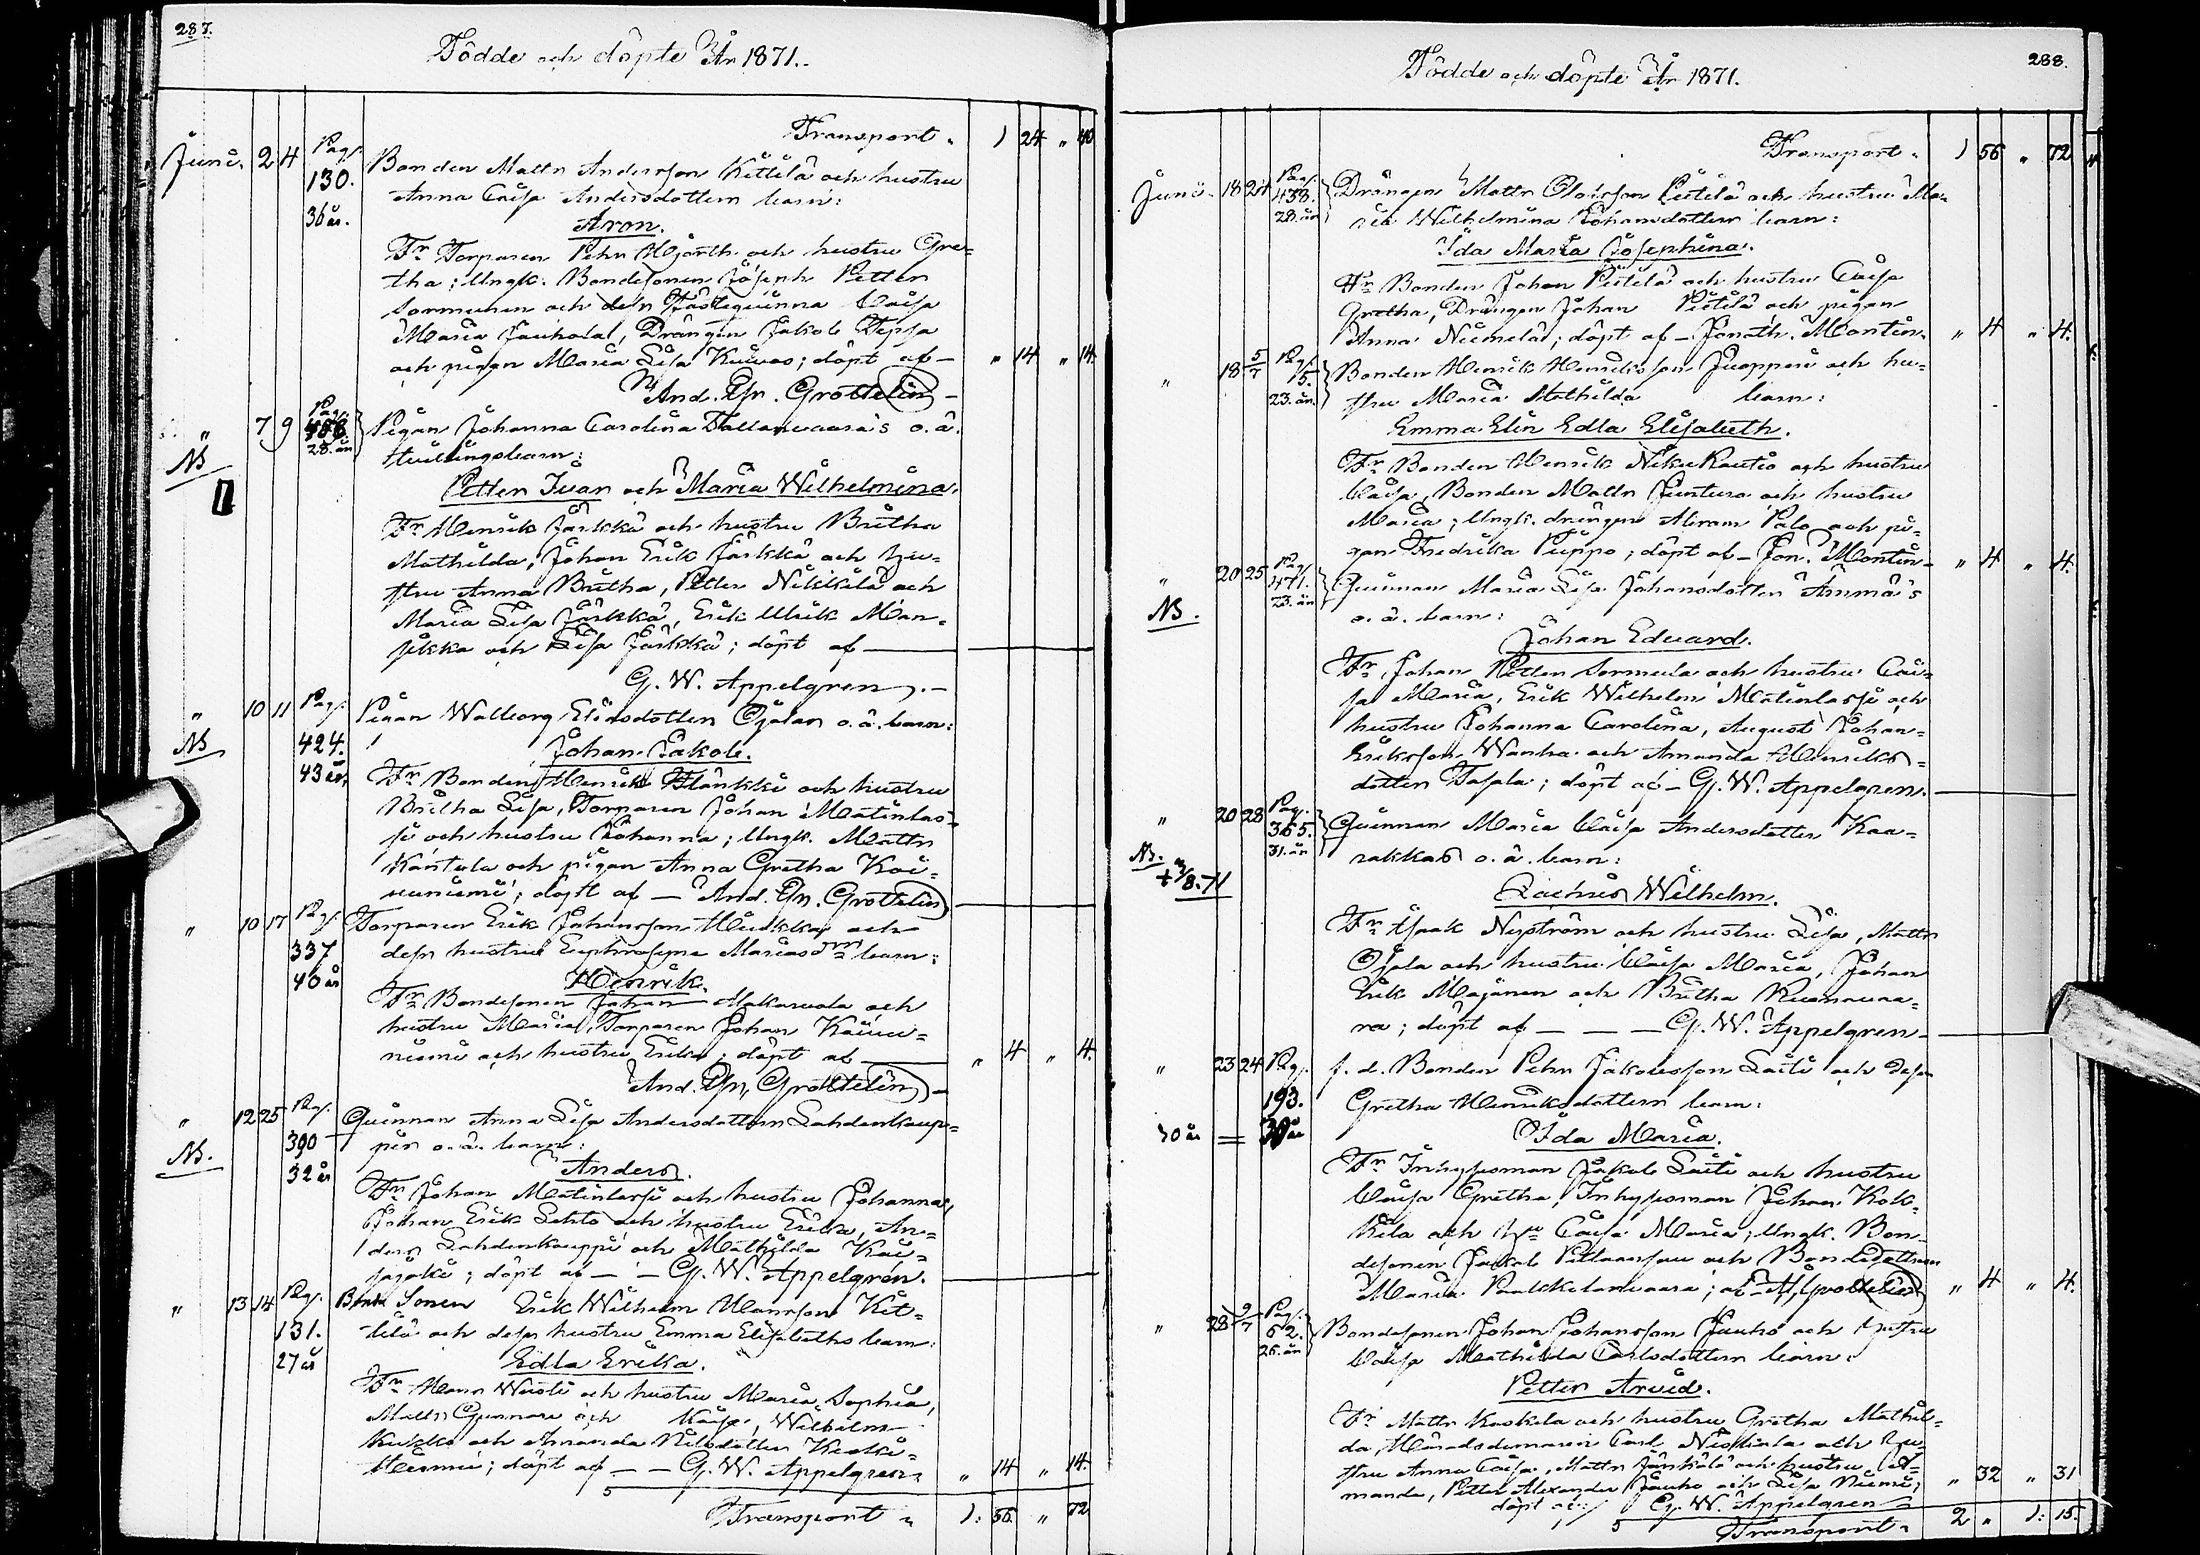 287.
Födde och döpte År 1871.
Transport „ 1 24 „ 40
Junii 2 4 Pag. 130. 36 år.
Bonden Matts Andersson Kittilä och hustru
Anna Caisa Andersdotters barn:
Aron.
Fr Torparen Pehr Hjorth och hustru Gre-
tha; Ungk. Bondesonen Joseph Petter
Sormunen och dess Fästeqvinna Caisa
Maria Jauhola, Drängen Jakob Tepsa
och pigan Maria Lisa Kuivas; döpt af — „ 14 „ 14.
And. Gr. Grottelin —
„ 7 9 Pag. 28. år
NB
Pigan Johanna Carolina Tallawaara's o. ä.
tvillingsbarn:
Petter Ivar och Maria Wilhelmina.
Fr Henrik Järkkä och hustru Britha
Mathilda, Johan Erik Järkkä och hu-
stru Anna Britha, Petter Nikkilä och
Maria Lisa Järkkä, Erik Ulrik Man-
sikka och Lisa Järkkä; döpt af —
G. W. Appelgren. —
„ 10 11 Pag. 424. 43 år.
NB
Pigan Walborg Eliasdotter Ojalas o. ä. barn:
Johan Jakob.
Fr Bonden Henrik Flänkki och hustru
Britha Lisa, Torparen Johan Matinlas-
si och hustru Johanna; Ungk. Matts
Kantola och pigan Anna Gretha Koi-
vuniemi; döpt af — And. Gr. Grottelin
„ 10 17 Pag. 337 40 år
Torparen Erik Johansson Hiukka och
dess hustru Euphrosyne Mariasdr barn:
Henrik.
Fr Bondesonen Johan Makarvola och
hustru Maria, Torparen Johan
niemi och hustru Erika; döpt af — „ 4 „ 4.
And. Gr. Grottelin —
„ 12 25 Pag. 390 32 år
NB.
Qvinnan Anna Lisa Andersdotters Lahdenkaup-
pis o. ä. barn:
Anders.
Fr Johan Matinlassi och hustru Johanna,
Johan Erik Lehto och hustru Erika, An-
ders Lahdenkauppi och Mathilda Kai-
sajoki; döpt af — — G. W. Appelgren.
„ 13 14 Pag. 131. 27 år
Sonen Erik Wilhelm Mannsson Kit-
tilä och dess hustru Emma Elisabeths barn:
Edla Erika.
Fr Mann Wuoti och hustru Maria Sophia,
Matts Gunnari och Kaisa, Wilhelm
Kukko och Amanda Nilsdotter Keski-
niemi; döpt af — — G. W. Appelgren. „ 14 „ 14.
5
Transport „ 1: 56 „ 72
288.
Födde och döpte År 1871.
Transport „ 1 56 „ 72
Junii 18 24 Pag. 28. år
Drängen Matts Olofsson Pietilä och hustru Ma-
ria Wilhelmina Johansdotters barn:
Ida Maria Josephina.
Fr Bonden Johan Pietilä och hustru Caisa
Gretha, Drängen Johan Pietilä och pigan
Anna Niemelä; döpt af — Jonath. Montin. „ 4 „ 4.
„ 18 5/7 Pag. 15. 23. år.
Bonden Henrik Henriksson Juopperi och hu-
stru Maria Mathilda barn:
Emma Elin Edla Elisabeth.
Fr Bonden Henrik Niku Rautio och hustru
Caisa, Bonden Matts Juntura och hustru
Maria; Ungk. drängen Abram Palo och pi-
gan Fredrika Piippo; döpt af — Jon. Montin — „ 4 „ 4.
„ 20 25 Pag. 471. 23. år
NB.
Qvinnan Maria Lisa Johansdotter Ämmä's
o. ä. barn:
Johan Edvard.
Fr Johan Petter Sormula och hustru Cai-
sa Maria, Erik Wilhelm Matinlassi och
hustru Johanna Carolina, August Johan
Eriksson Wanha och Amanda Henriks-
dotter Tapala; döpt af — G. W. Appelgren.
„ 20 28 Pag. 365. 31. år
NB.
Qvinnan Maria Caisa Andersdotter Kaa-
rakkas o. ä. barn:
Zachris Wilhelm.
Fr Isaak Nyström och hustru Lisa, Matts
Ojala och hustru Caisa Maria, Johan
Erik Majanen och Britha Ruonavaa-
ra; döpt af — — — G. W. Appelgren —
„ 23 24 Pag. 193.
30 år = 30 år
f. d. Bonden Pehr Jakobsson Laiti och dess
Gretha Henriksdotters barn:
Ida Maria.
Fr Inhysesman Jakob Laiti och hustru
Caisa Gretha, Inhysesman Johan Kok-
kila och hu Caisa Maria; Ungk. Bon-
desonen Jakob och Bondedottren
Maria Palokkalanvaara; af — A. Grottelin „ 4 „ 4.
„ 28 9/7 Pag. 62. 26. år
Bondesonen Johan Johansson Jauho och hustru
Caisa Mathilda Carlsdotters barn:
Petter Arvid.
Fr Matts Koskela och hustru Gretha Mathil-
da, Häradsdomaren Carl och hu-
stru Anna Caisa, Matts Jänkälä och hustru A-
manda, Petter Alexander Jauho och Lisa Niemi;
döpt af: G. W. Appelgren „ 32 „ 31
5
Transport „ 2 „ 1: 15.